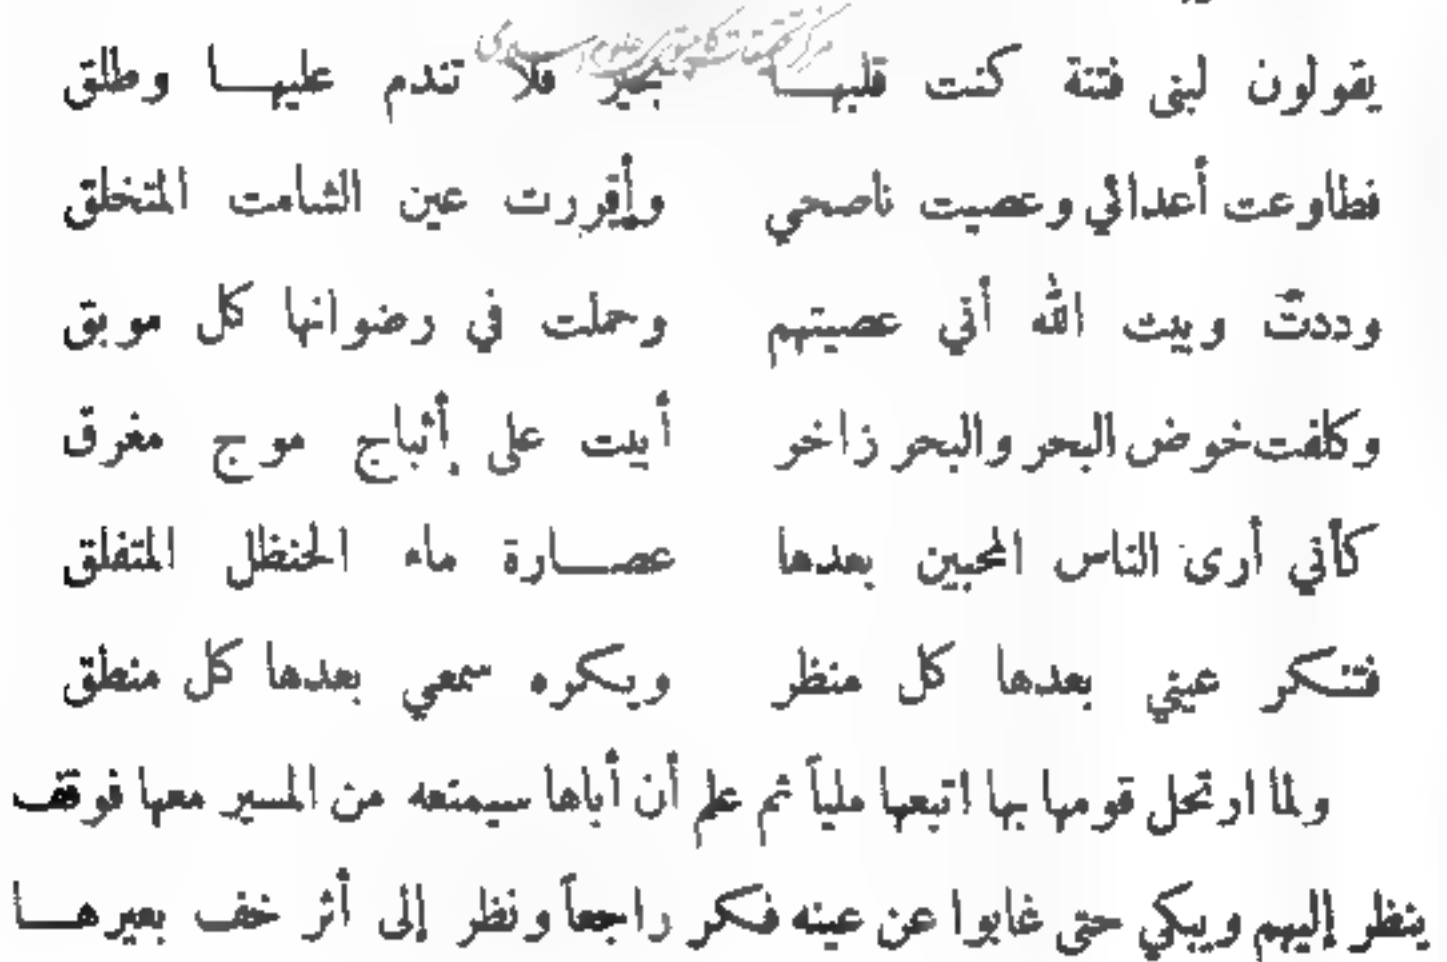 يقولون لبنى فتنة كنت قلبها بخير فلا تندم عليها وطلق
فطاوعت أعدائي وعصيت ناصحي وأقررت عين الشامت المتخلق
وددتّ وبيت الله أني عصيتهم وحملت في رضوانها كل موبق
وكلفت خوض البحر والبحر زاخر أبيت على إثباج موج مغرق
كأني أرى الناس المحبين بعدها عصارة ماء الحنظل المتفلق
فتنكر عيني بعدها كل منظر ويكره سمعي بعدها كل منطق
ولما ارتحل قومها بها اتبعها ملياً ثم علم أن أباها سيمنعه من المسير معها فوقف
ينظر إليهم ويبكي حتى غابوا عن عينه فكر راجعاً ونظر إلى أثر خف بعيرها